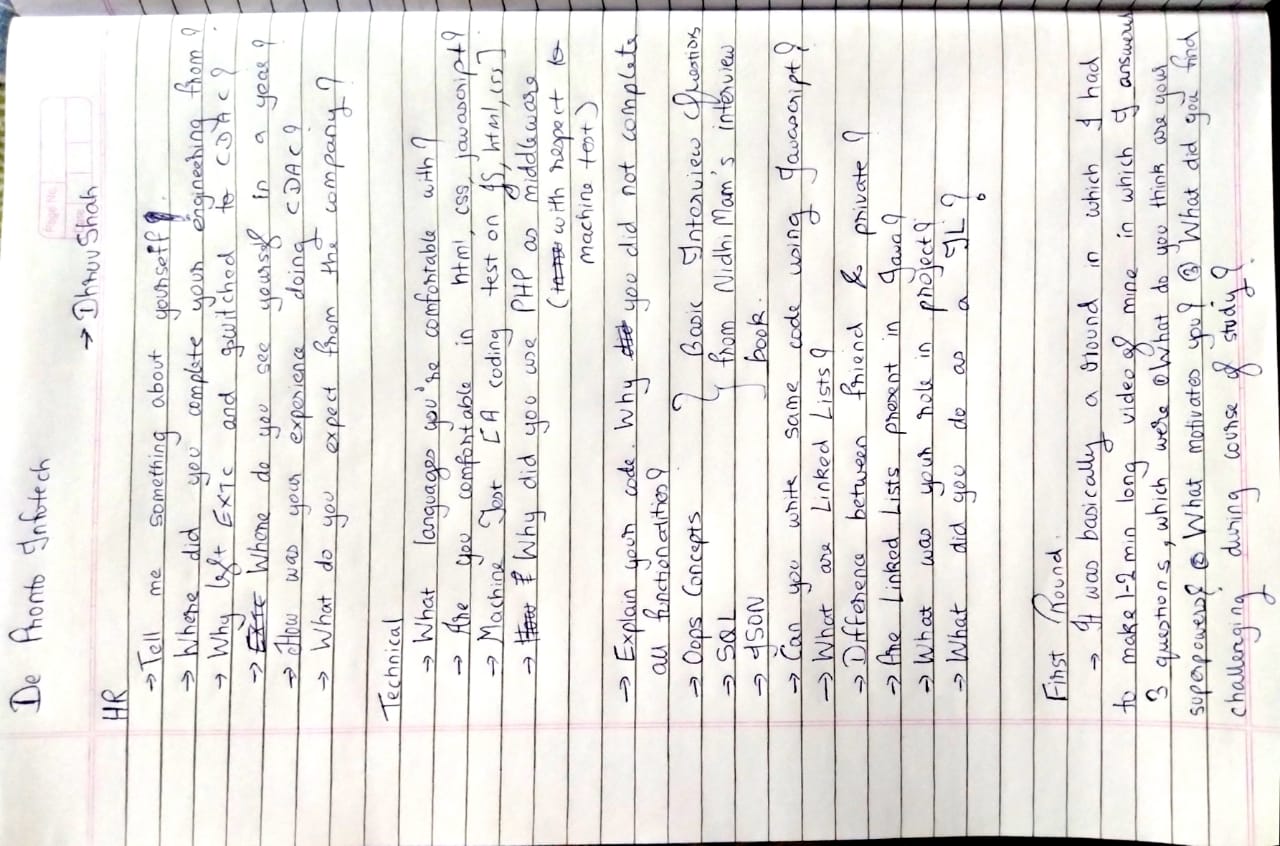 De Pronto Infotech
→ Dhruv Shah
Page No.
Date
HR
→ Tell me something about yourself?
→ Where did you complete your engineering from?
→ Why left EXTC and switched to CDAC?
→ Where do you see yourself in a year?
→ How was your experience doing CDAC?
→ What do you expect from the company?
Technical
→ What languages you're comfortable with?
→ Are you comfortable in html, css, javascript?
→ Machine Test [A coding test on JS, html, css]
→ Why did you use PHP as middleware
(with respect to
machine test)
→ Explain your code. Why you did not complete
all functionalities?
→ Oops Concepts } Basic Interview Questions
→ SQL from Nidhi Mam's interview
→ JSON book.
→ Can you write same code using Javascript?
→ What are Linked Lists?
→ Difference between friend & private?
→ Are Linked Lists present in Java?
→ What was your role in project?
→ What did you do as a TL?
First Round.
→ It was basically a round in which I had
to make 1-2 min long video of mine in which I answered
3 questions, which were ① What do you think are your
superpowers? ② What motivates you? ③ What did you find
challenging during course of study?